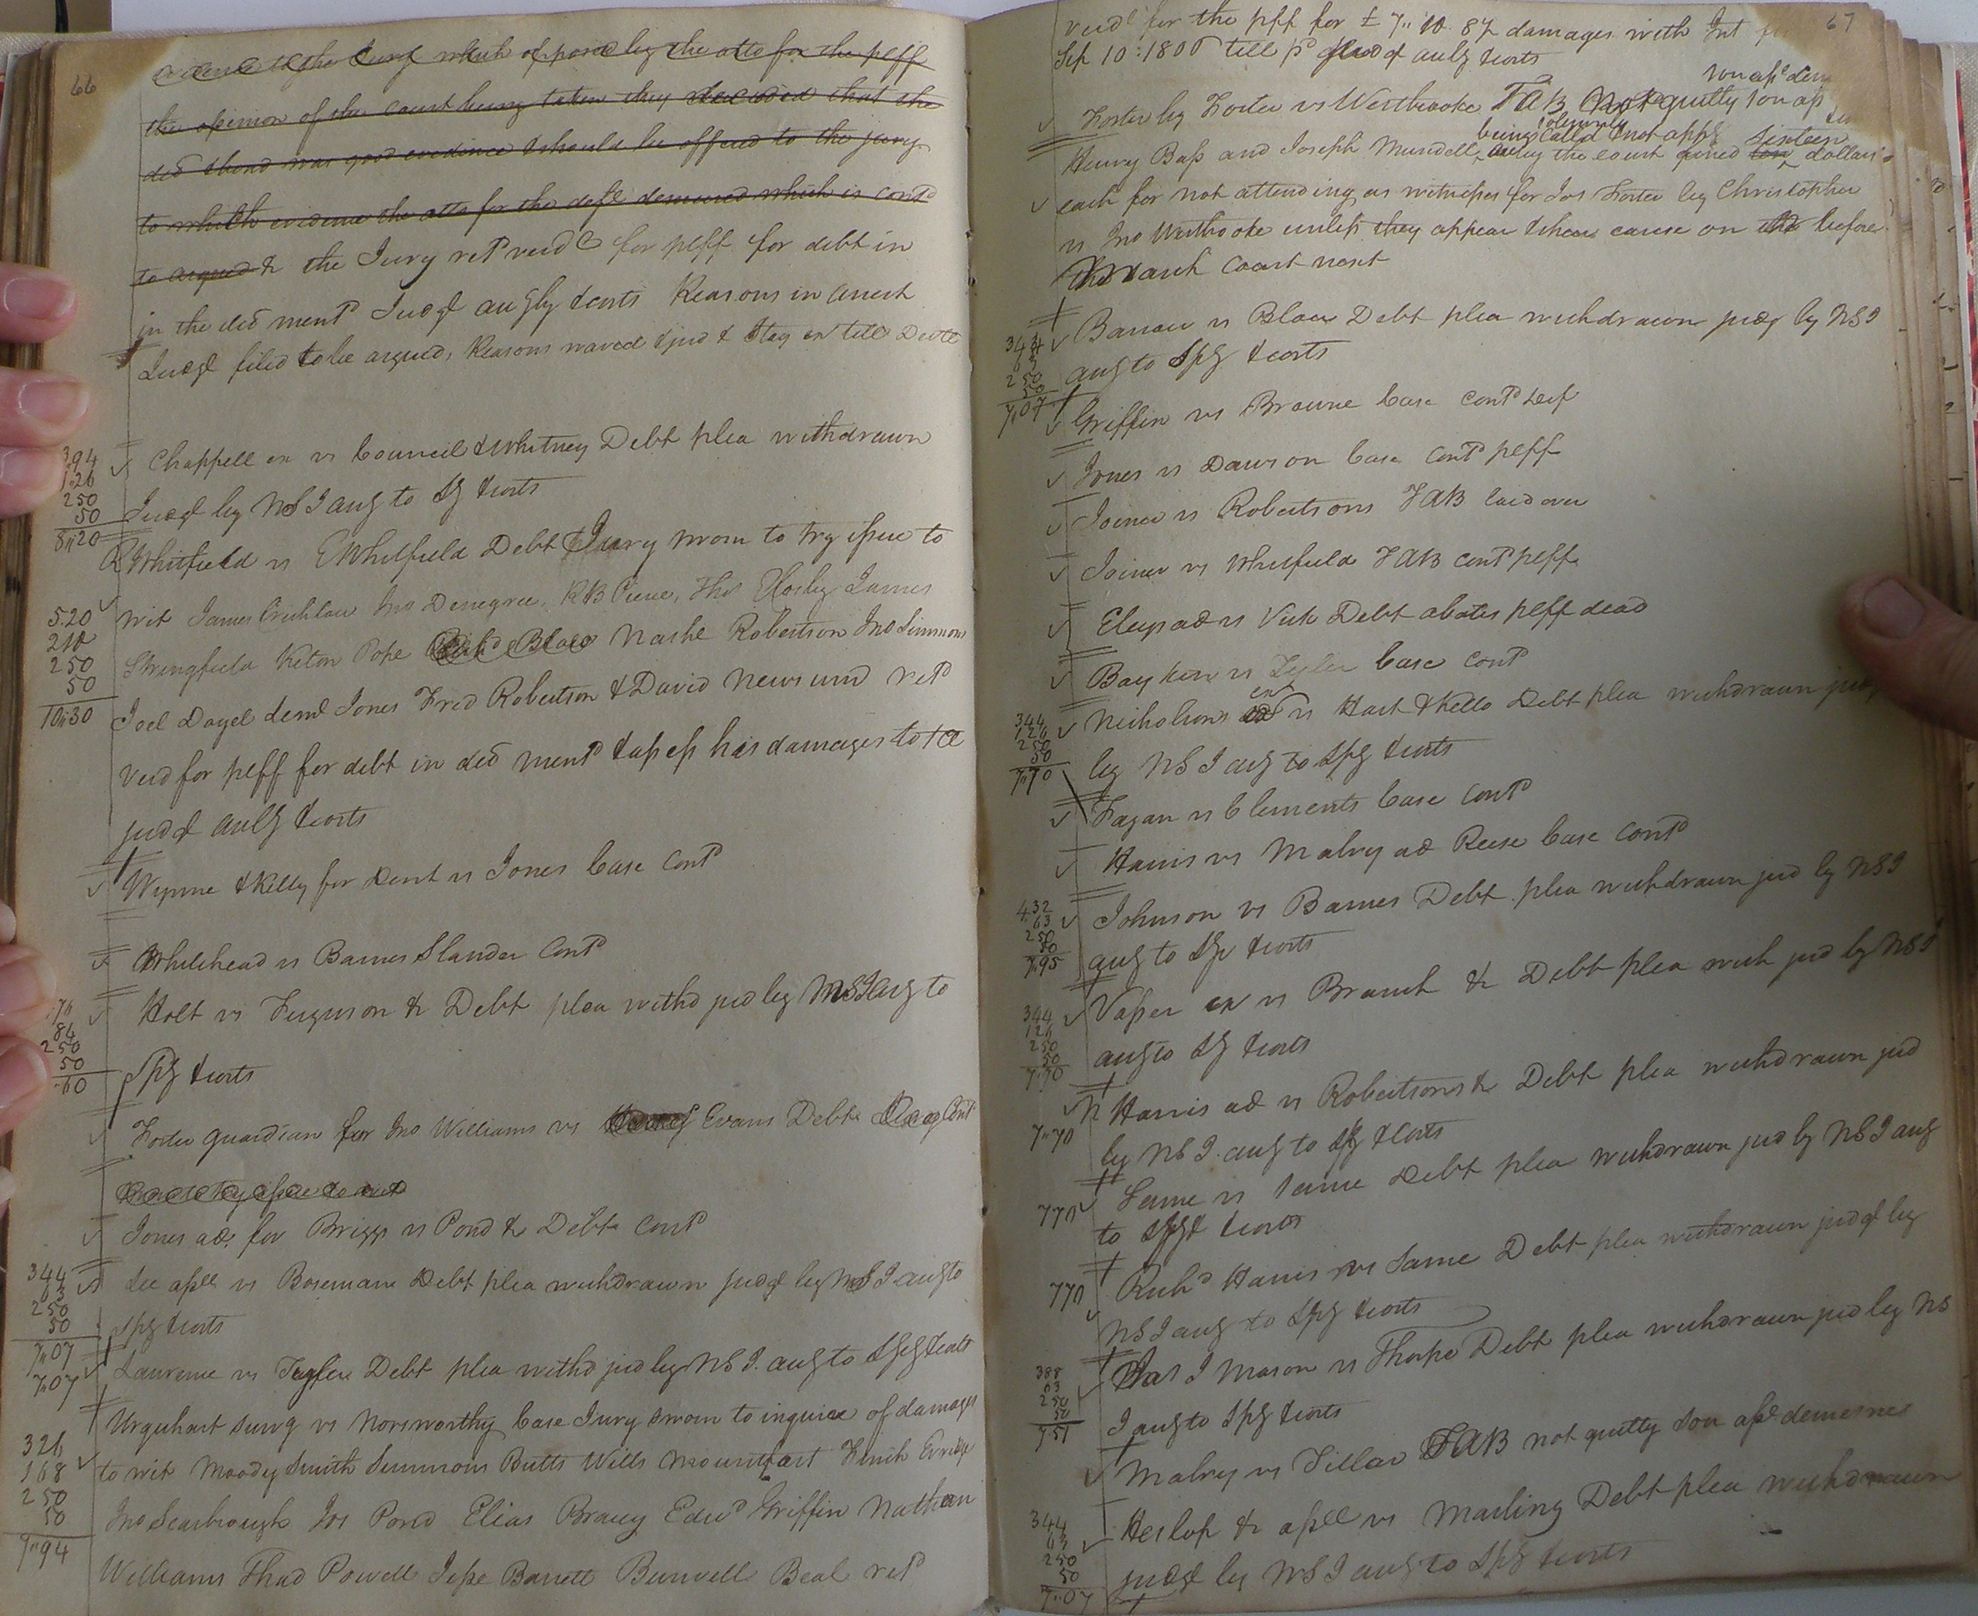 66
the opinion of the court being taken they decided that the
ded bond was good evidence & should be offered to the jury
to which evidence the atto for the deft demured which is contd
to argued & the Jury retd verdt for plff for debt in
in the ded mentd Judgt & costs Reasons in arrest
Judgt filed to be argued, Reasons waved & jud & Stay
394
1.26
250
50
8,,20
Chappell ex vs Council & Whitney Debt plea withdrawn
Judgt by NSI aug to Spg & costs
R Whitfield vs E Whitfield Debt Jury sworn to try issue to
5.20
210
250
50
10,,30
wit James Crichlow Jno Denegree, Thos James
Stringfield Kiton Pope Nashl Robertson Jno Simmons
Joel Dayel Jones Fred Robertson & David Newsum retd
verd for plff for debt in ded mentd & asses his damages to
judgt & costs
Wynne & Kelly for Dent vs Jones Case contd
Whitehead vs Barnes Slander contd
84
250
50
Holt vs Ferguson & Debt plea withd jud by NSI aug to
Spg & costs
Foster guardian for Jno Williams vs Evans Debt
Jones ad. for Briggs vs Pond & Debt contd
344
63
250
50
7,,07
Lee assee vs Boseman Debt plea withdrawn judgt by NSI aug to
Spg & costs
7,,07
Laurence vs Debt plea withd jud by NSI. aug to Spg & costs
Urquhart survg vs Norsworthy Case Jury sworn to inquire of damages
326
168
250
50
7,,94
to wit Moody Smith Simmons Butts Wills Mountfort
Jno Scarbrough Jos Pond Elias Bracy Edwd Griffin Nathan
Williams Thad Powell Jesse Barrett Burwell Beal retd
67
verdt for the plff for £ 7,, 10. 8½ damages with Int
Sep 10: 1800 till pd judgt & costs
son ast dem
Foster by Foster vs Westbrooke TAB Not guilty son as
being solemnly called & not appg sixteen
Henry Bass and Joseph Mundell, the court fined dollars
each for not attending as witnesses for Jos Foster by Christopher
vs Jno Westbrooke unless they appear & shew cause on or before
March court next
344
63
250
50
7,,07
Barrow vs Blow Debt plea withdrawn judgt by NSI
aug to Spg & costs
Griffin vs Browne Case contd deft
Jones vs Dawson Case contd plff
Joiner vs Robertsons TAB laid over
Joiner vs Whitfield TAB contd plff
ad vs Vick Debt abates plff dead
Baykin vs Tyler Case contd
344
126
250
50
7,,70
Nicholsons ex vs Hart & Kello Debt plea withdrawn judgt
by NSI aug to Spg & costs
Fagan vs Clements Case contd
Harris vs Malry ad Reese Case contd
432
63
250
50
7,,95
Johnson vs Barnes Debt plea withdrawn jud by NSI
aug to Spg & costs
344
126
250
50
7,,70
Vasser ex vs Branch & Debt plea with jud by NSI
aug to Spg & costs
7,,70
N Harris ad vs Robertsons & Debt plea withdrawn jud
by NSI. aug to Spg & costs
770
Same vs Same Debt plea withdrawn jud by NSI aug
to Spg & costs
770
Richd Harris vs Same Debt plea withdrawn judgt by
NSI aug to Spg & costs
388
63
250
50
7,,51
Jas J Mason vs Thorpe Debt plea withdrawn jud by NS
I aug to Spg & costs
Malry vs Tillar TAB not guilty son asst demesnes
344
63
250
50
7,,07
Heslop & assee vs Marling Debt plea withdrawn
judgt by NSI aug to Spg & costs